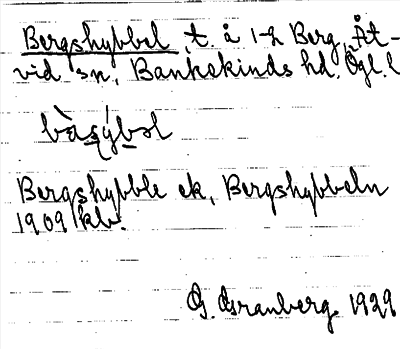 Bergshybbel, t. å 1-2 Berg, Åt-
vid sn, Bankekinds hd. Ögl. l
bàsýbəl
Bergshybble ek, Bergshybbeln
1909 kb.
G. Granberg 1929